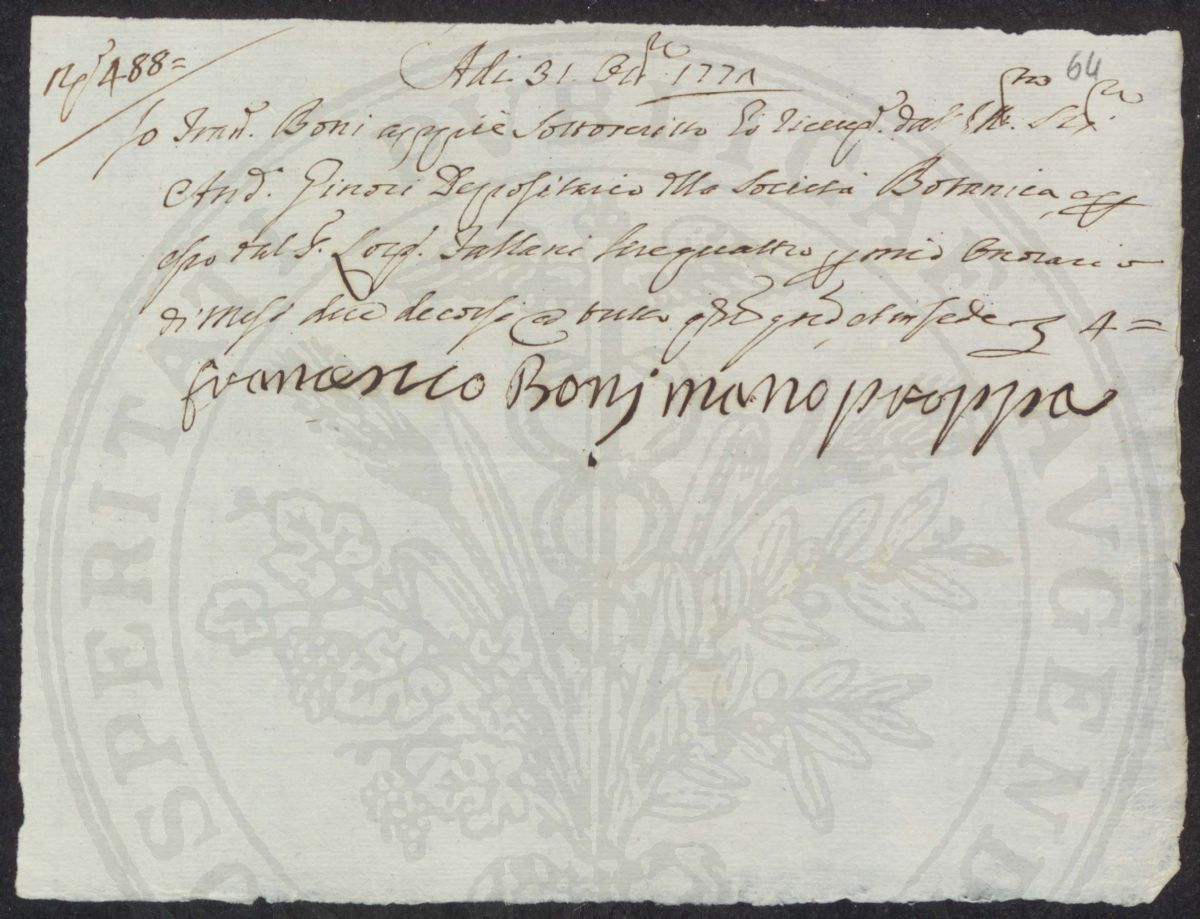 488=
Adi 31. Ott.re 1771
64
Io Fran.o Boni appiè Sottoscritto ò ricev.o dal Ill.mo Sig.re
And.a Ginori Depositario della Società Botanica, e p
esso dal S. Lorenz. lire quattro p mio Onorario
di Mesi due decorsi a tutto q.to g.no ed in fede £ 4=
francesco Bonj mano proppa
PROSPERITATI PUBLICAE AUGENDAE